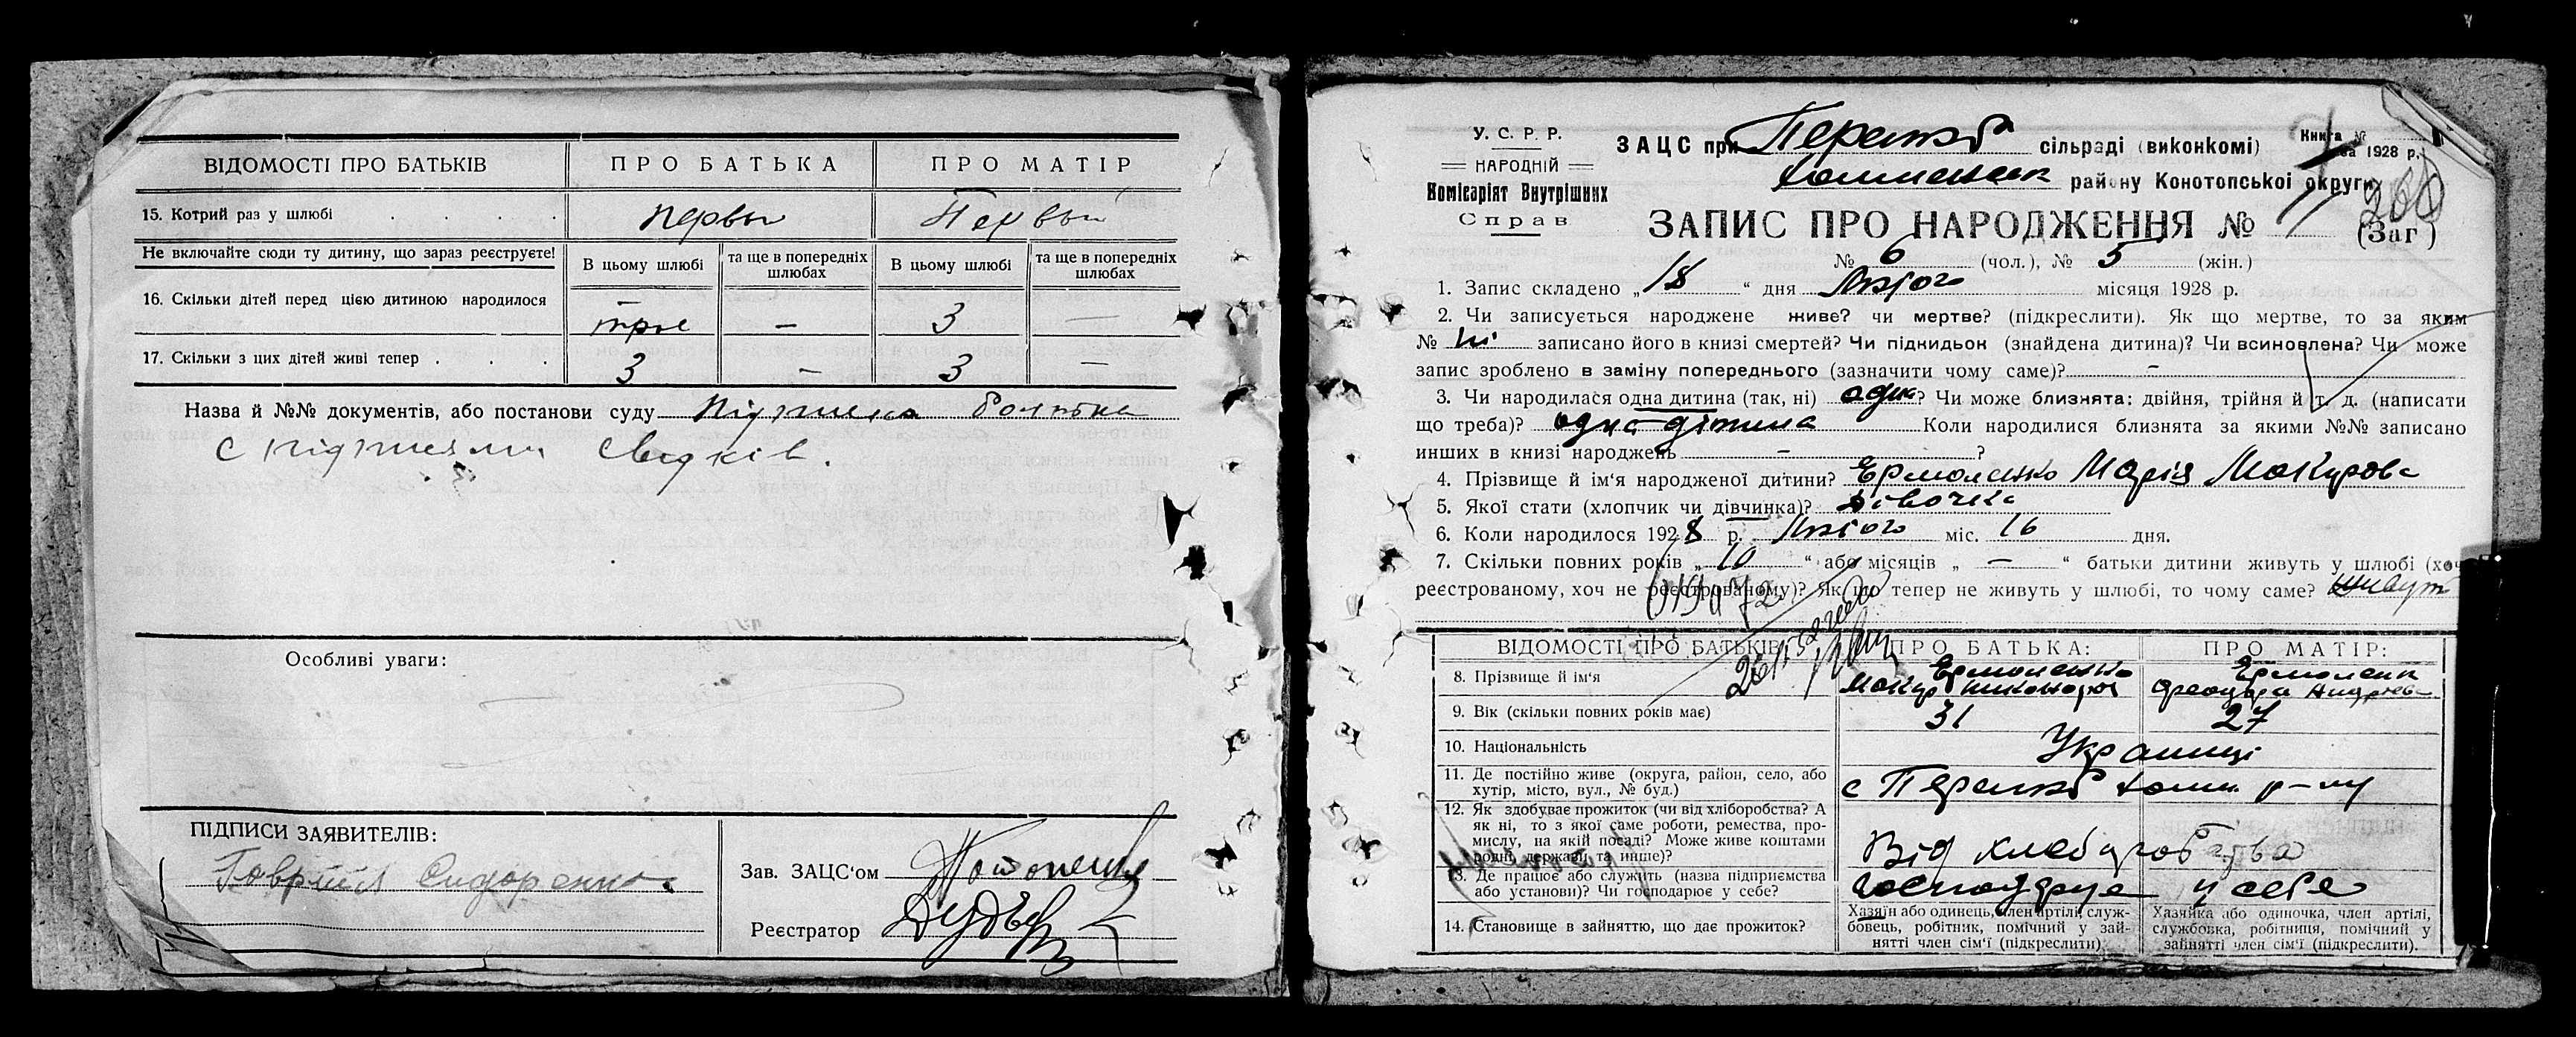 ВІДОМОСТІ ПРО БАТЬКІВ ПРО БАТЬКА ПРО МАТІР
15. Котрий раз у шлюбі первы Первый
Не включайте сюди ту дитину, що зараз реєструєте! В цьому шлюбі та ще в попередніх шлюбах В цьому шлюбі та ще в попередніх шлюбах
16. Скільки дітей перед цією дитиною народилося трое — 3 —
17. Скільки з цих дітей живі тепер 3 — 3 —
Назва й №№ документів, або постанови суду
свідків.
Особливі уваги:
ПІДПИСИ ЗАЯВИТЕЛІВ:
Гаврііл Сидоренко
Зав. ЗАЦС'ом
Реєстратор
У. С. Р. Р.
НАРОДНІЙ
Комісаріят Внутрішних
Справ
ЗАЦС при сільраді (виконкомі)
району Конотопської округи
Книга №
за 1928 р.
ЗАПИС ПРО НАРОДЖЕННЯ № 11 (Заг)
№ 6 (чол.), № 5 (жін.)
1. Запис складено „18“ дня Лютого місяця 1928 р.
2. Чи записується народжене живе? чи мертве? (підкреслити). Як що мертве, то за яким
№ ні записано його в книзі смертей? Чи підкидьок (знайдена дитина)? Чи всиновлена? Чи може
запис зроблено в заміну попереднього (зазначити чому саме)? –
3. Чи народилася одна дитина (так, ні) одна? Чи може близнята: двійня, трійня й т. д. (написати
що треба)? одна дітина Коли народилися близнята за якими №№ записано
инших в книзі народжень – ?
4. Прізвище й ім'я народженої дитини? Ермоленко Марія Макурова
5. Якої стати (хлопчик чи дівчинка)? дівочка
6. Коли народилося 1928 р. Лютого міс. 16 дня.
7. Скільки повних років „10“ або місяців „—“ батьки дитини живуть у шлюбі (хоч
реєстрованому, хоч не реєстрованому)? Як що тепер не живуть у шлюбі, то чому саме? живут
ВІДОМОСТІ ПРО БАТЬКІВ ПРО БАТЬКА: ПРО МАТІР:
8. Прізвище й ім'я Ермоленко Ермоленк
9. Вік (скільки повних років має) 31 27
10. Національність Украинці
11. Де постійно живе (округа, район, село, або
хутір, місто, вул., № буд.) с
12. Як здобуває прожиток (чи від хліборобства? А
як ні, то з якої саме роботи, ремества, про-
мислу, на якій посаді? Може живе коштами
родні, держави та инше)? Від хлеборобства
13. Де працює або служить (назва підприємства
або установи)? Чи господарює у себе? господарує у себе
14. Становище в зайняттю, що дає прожиток?
Хазяїн або одинець, член артілі, служ-
бовець, робітник, помічний у зай-
нятті член сім'ї (підкреслити).
Хазяйка або одиночка, член артілі,
службовка, робітниця, помічний у
зайнятті член сім'ї (підкреслити).